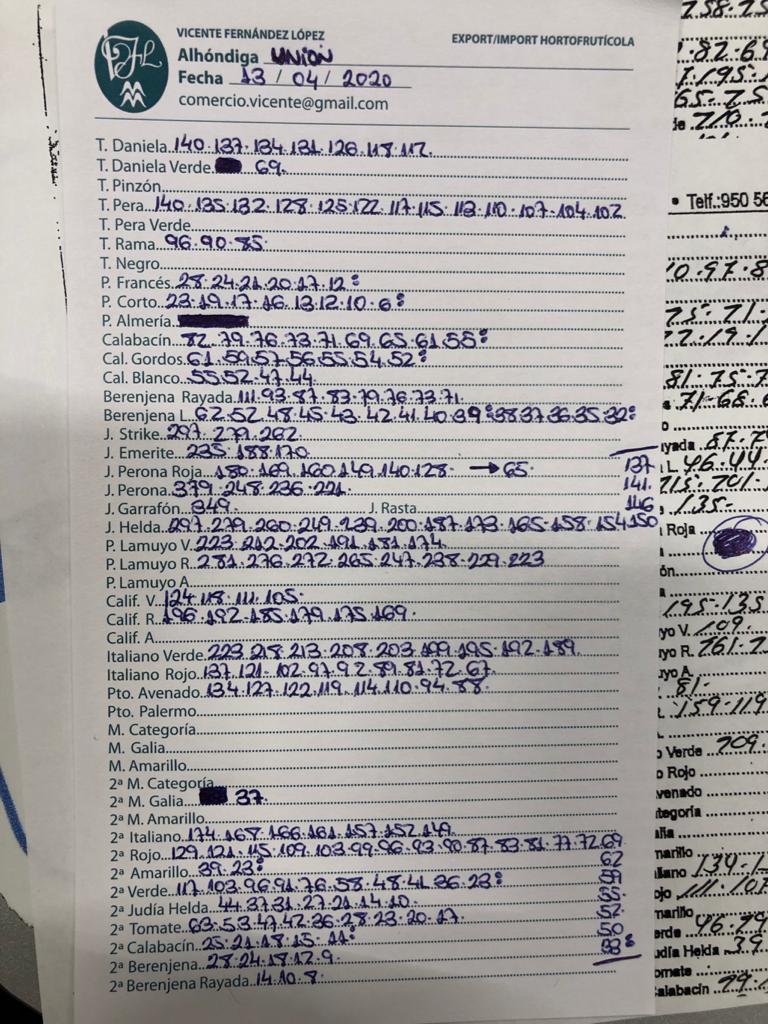 VICENTE FERNÁNDEZ LÓPEZ
EXPORT/IMPORT HORTOFRUTÍCOLA
Alhóndiga UNION
Fecha 13 / 04 / 2020
comercio.vicente@gmail.com
T. Daniela 140.137.134.131.126.118.112.
T. Daniela Verde 69.
T. Pinzón
T. Pera 140.135.132.128.125.122.117.115.113.110.107.104.102
T. Pera Verde
T. Rama 96.90.85.
T. Negro
P. Francés 28.24.21.20.17.12:
P. Corto 23.19.17.16.13.12.10.6:
P. Almería
Calabacín 82.79.76.73.71.69.65.61.55:
Cal. Gordos 61.59.57.56.55.54.52:
Cal. Blanco 55.52.47.44
Berenjena Rayada 111.93.87.83.79.76.73.71.
Berenjena L. 62.52.48.45.43.42.41.40.39:38.37.36.35.32:
J. Strike 297.279.262.
J. Emerite 235.188.170.
J. Perona Roja 180.169.160.149.140.128. → 65. 137
J. Perona 379.248.236.221. 141.
J. Garrafón 349. J. Rasta 146
J. Helda 297.279.260.249.239.200.187.173.165.158.154.150
P. Lamuyo V. 223.212.202.191.181.174.
P. Lamuyo R. 281.276.272.265.247.238.229.223
P. Lamuyo A.
Calif. V. 124.118.111.105.
Calif. R. 196.192.185.179.175.169.
Calif. A.
Italiano Verde 223.218.213.208.203.199.195.192.189.
Italiano Rojo 137.121.102.97.92.89.81.72.67.
Pto. Avenado 134.127.122.119.114.110.94.88.
Pto. Palermo
M. Categoría
M. Galia
M. Amarillo
2ª M. Categoría
2ª M. Galia 37.
2ª M. Amarillo
2ª Italiano 174.168.166.161.157.152.149.
2ª Rojo 129.121.115.109.103.99.96.93.90.87.83.81.77.72.69
2ª Amarillo 39.23: 62
2ª Verde 117.103.96.91.76.58.48.41.36.23: 59
2ª Judía Helda 44.37.31.27.21.14.10. 55
2ª Tomate 63.53.47.42.36.28.23.20.17. 52
2ª Calabacín 25.21.18.15.11: 50
2ª Berenjena 28.24.18.12.9.
2ª Berenjena Rayada 14.10.8.
Telf.:950 56